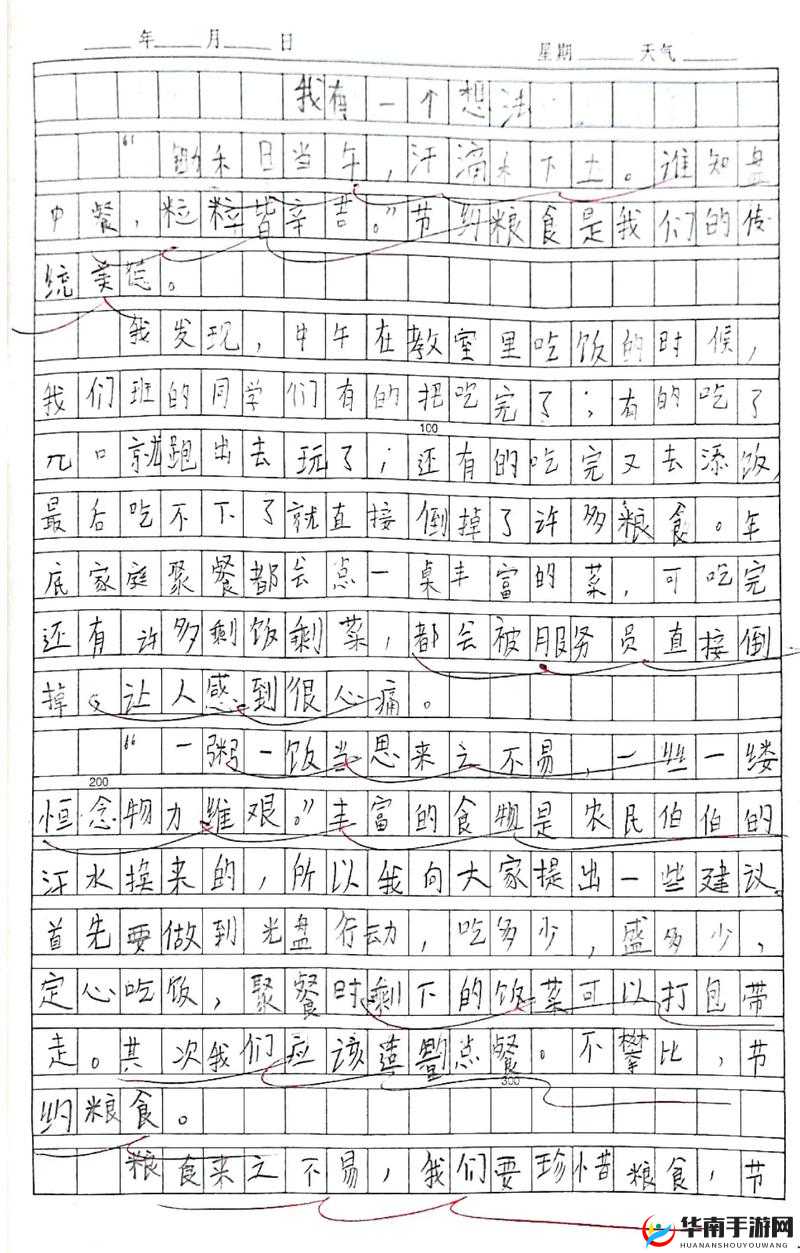 年 月 日 星期 天气
我有一个想法
“锄禾日当午，汗滴禾下土。谁知盘
中餐，粒粒皆辛苦。”节约粮食是我们的传
统美德。
我发现，中午在教室里吃饭的时候，
我们班的同学们有的把吃完了；有的吃了
100
几口就跑出去玩了；还有的吃完又去添饭，
最后吃不下了就直接倒掉了许多粮食。年
底家庭聚餐都会点一桌丰富的菜，可吃完
还有许多剩饭剩菜，都会被服务员直接倒
掉。让人感到很心痛。
“一粥一饭当思来之不易，一丝一缕
200
恒念物力维艰。”丰富的食物是农民伯伯的
汗水换来的，所以我向大家提出一些建议。
首先要做到光盘行动，吃多少，盛多少，
定心吃饭，聚餐时剩下的饭菜可以打包带
走。其次我们应该 量点餐。不攀比，节
300
约粮食。
粮食来之不易，我们要珍惜粮食，节
华南手游网
HUANANSHOUYOUWANG